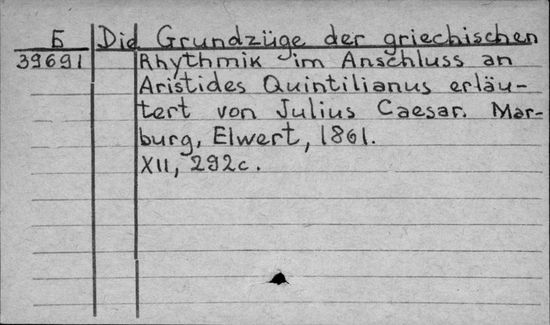 Б Die Grundzüge der griechischen
39691 Rhythmik im Anschluss an
Aristides Quintilianus erläu-
tert von Julius Caesar. Mar-
burg, Elwert, 1861.
XII, 292c.